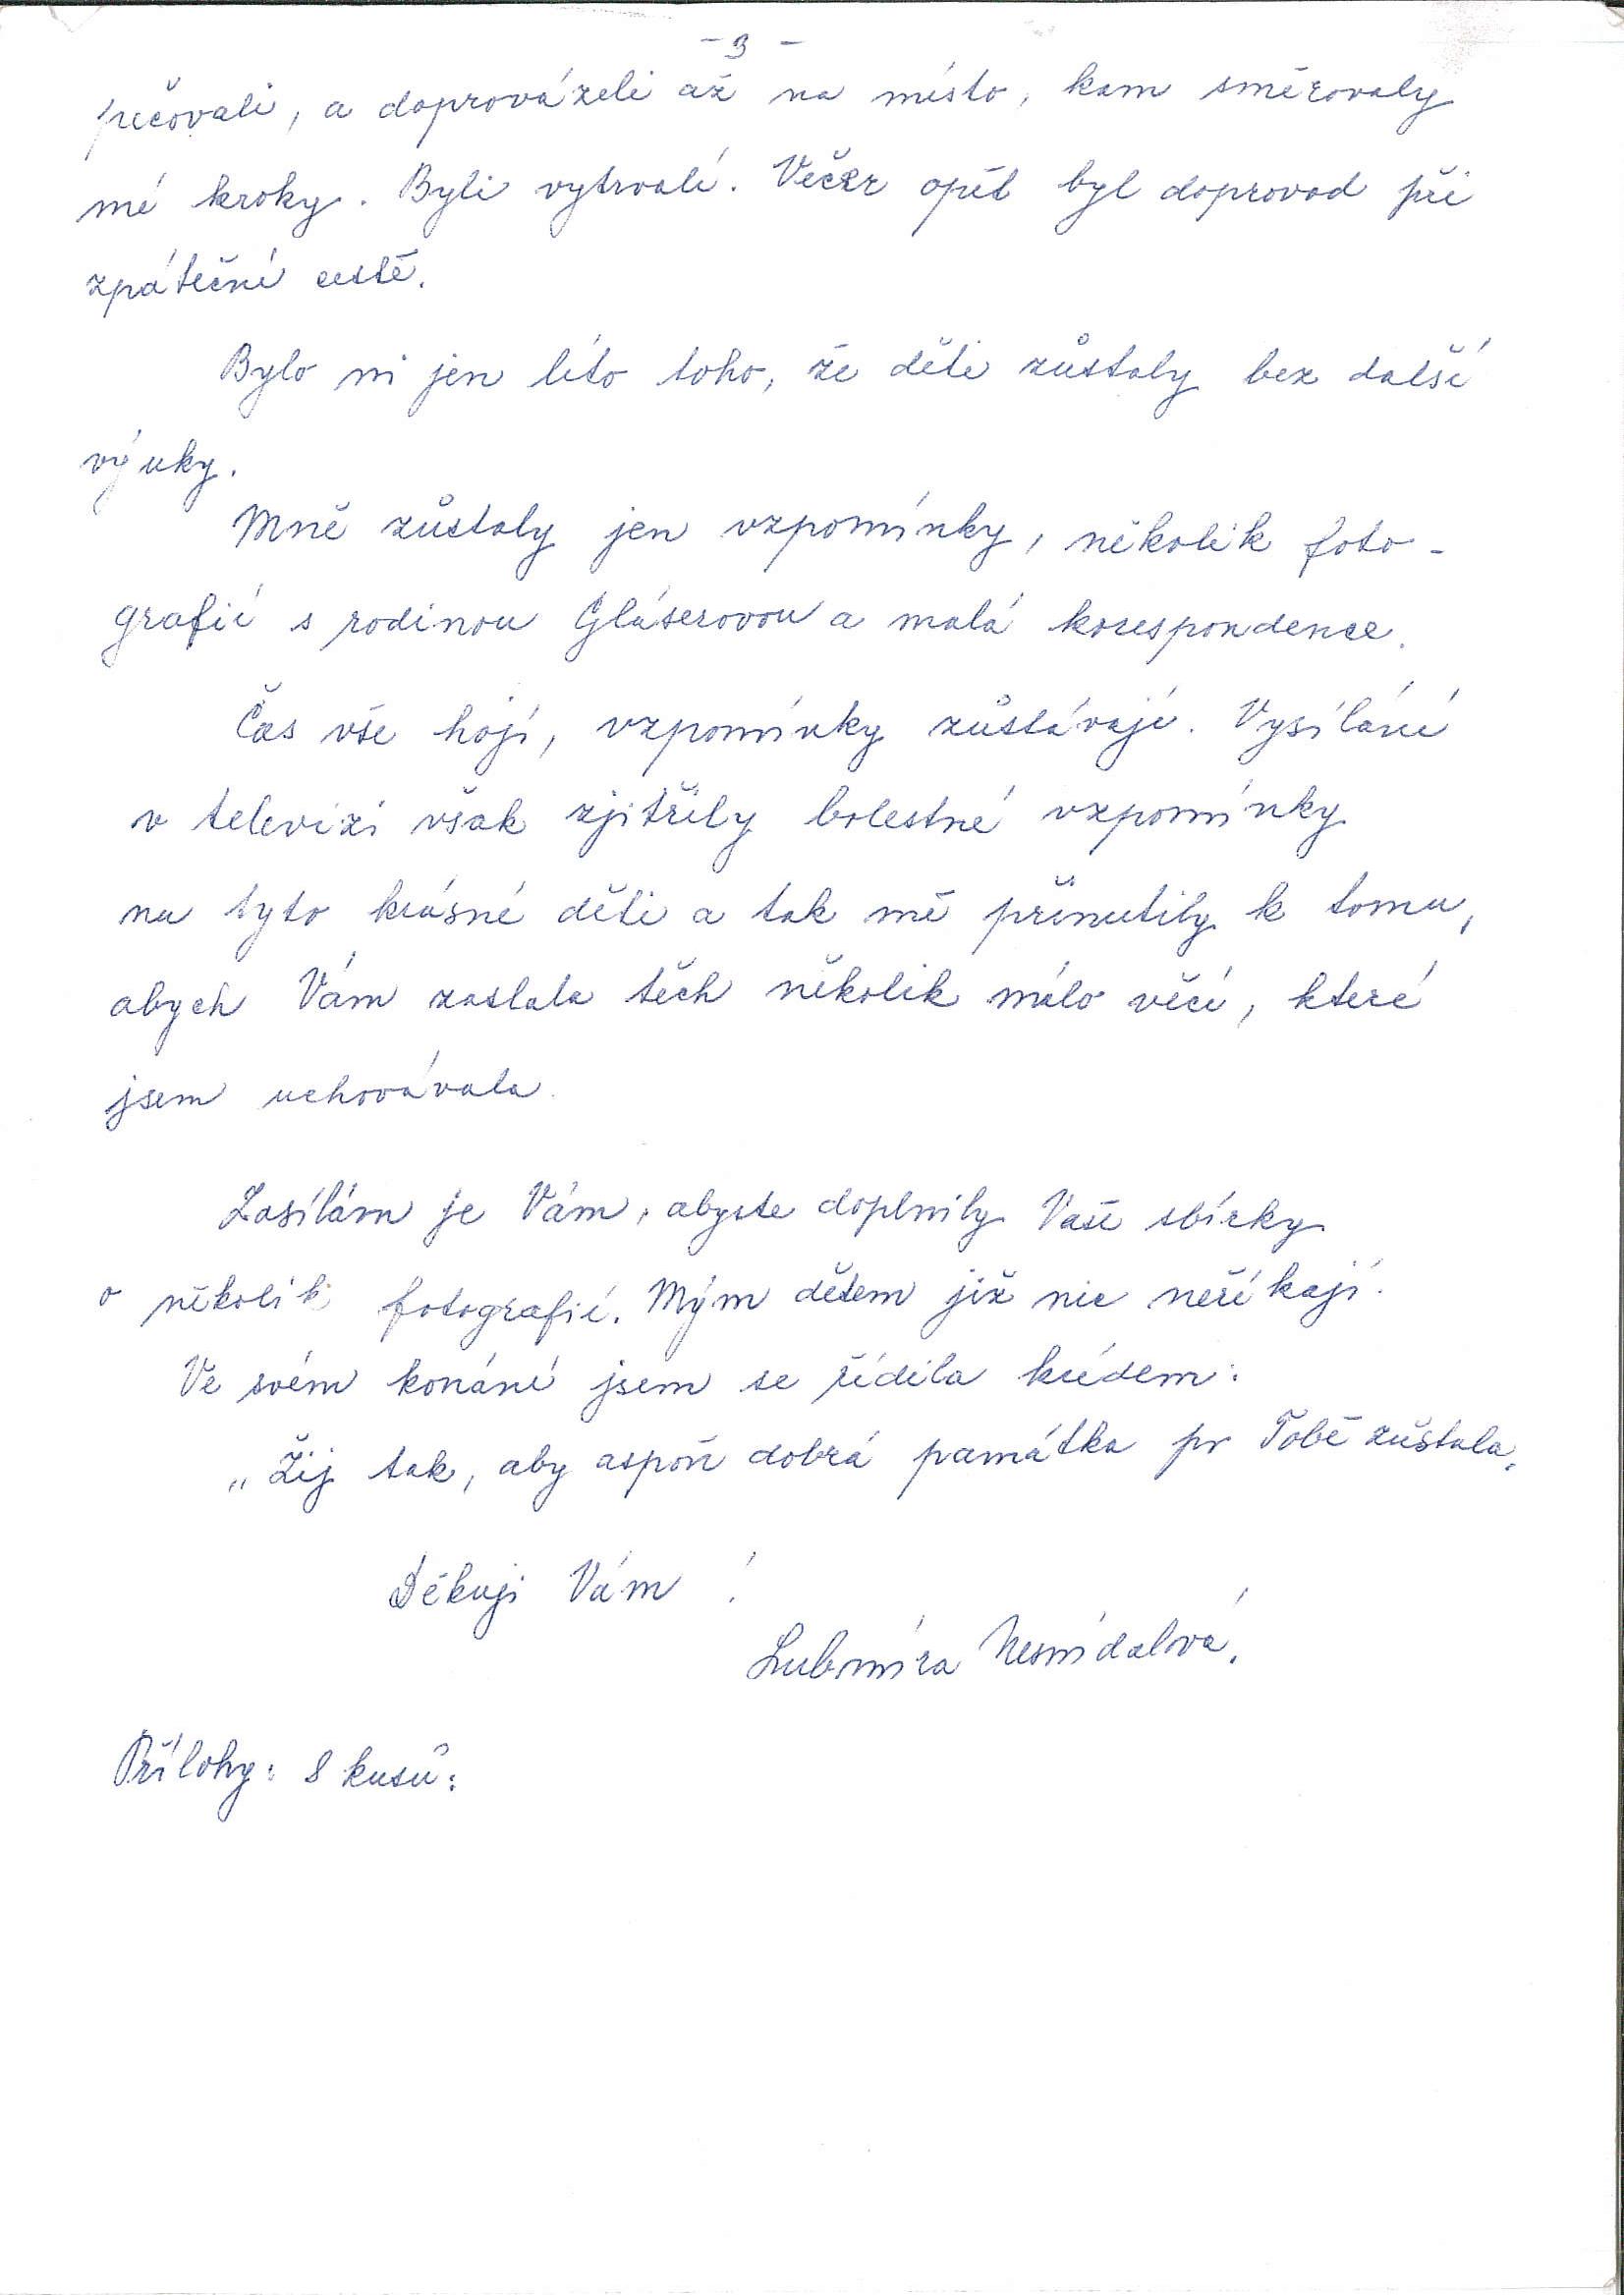 - 3 -
pečovali, a doprovázeli až na místo, kam směrovaly
mé kroky. Byli vytrvalí. Večer opět byl doprovod při
zpáteční cestě.
Bylo mi jen líto toho, že děti zůstaly bez další
výuky.
Mně zůstaly jen vzpomínky, několik foto-
grafií s rodinou Gláserovou a malá korespondence.
Čas vše hojí, vzpomínky zůstávají. Vysílání
v televizi však zjitřily bolestné vzpomínky
na tyto krásné děti a tak mě přinutily k tomu,
abych Vám zaslala těch několik málo věcí, které
jsem uchovávala.
Zasílám je Vám, abyste doplnily Vaše sbírky
o několik fotografií. Mým dětem již nic neříkají.
Ve svém konání jsem se řídila krédem:
„Žij tak, aby aspoň dobrá památka po Tobě zůstala.
Děkuji Vám !
Lubmíra Nesnídalová.
Přílohy: 8 kusů: